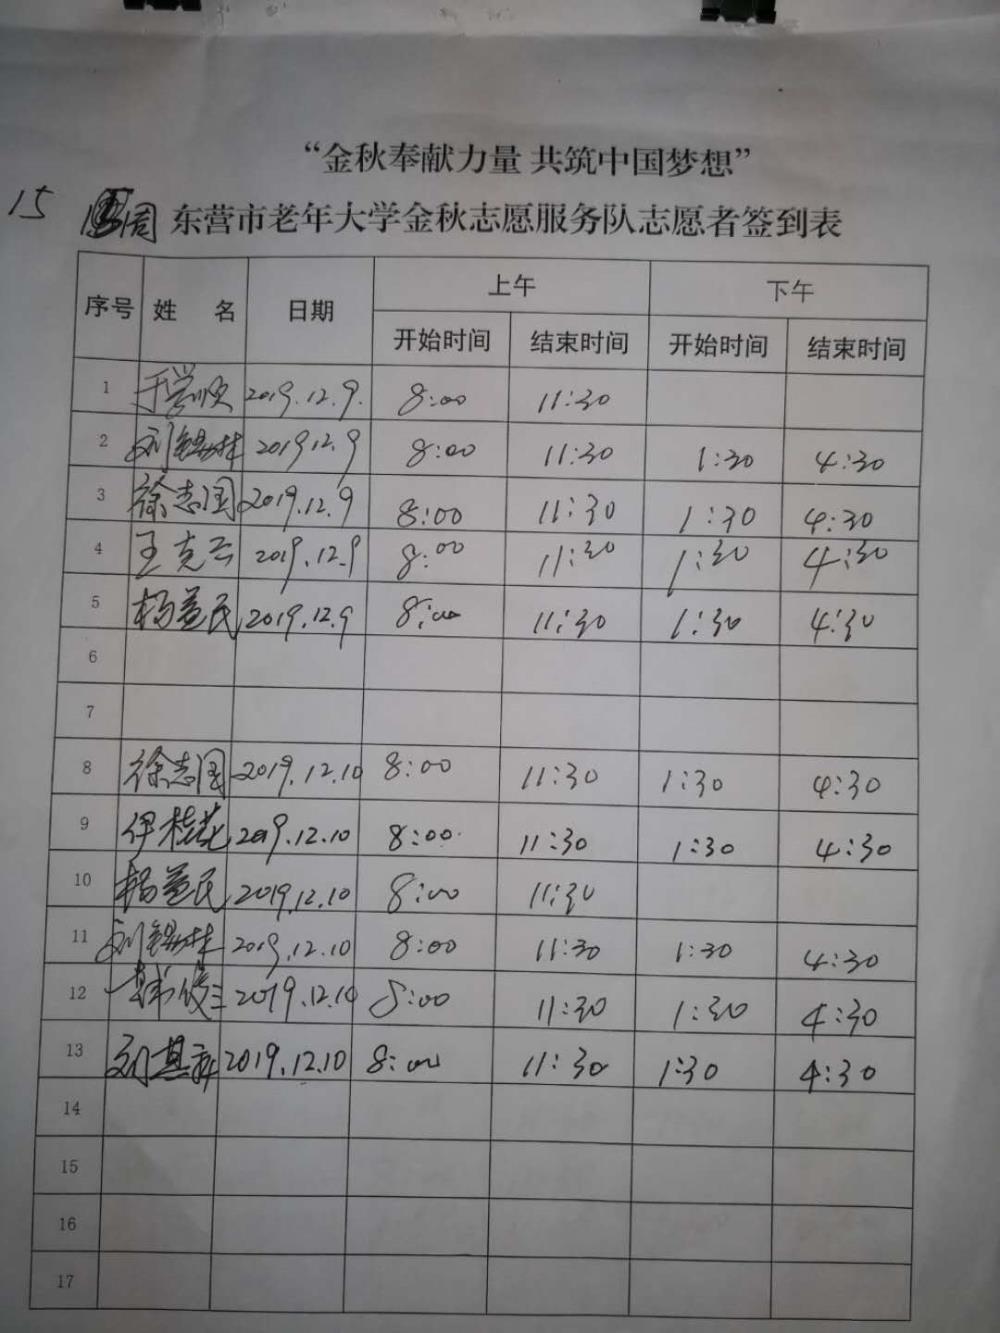 “金秋奉献力量 共筑中国梦想”
15 周 东营市老年大学金秋志愿服务队志愿者签到表
序号 姓 名 日期 上午 下午
开始时间 结束时间 开始时间 结束时间
1 于学顺 2019.12.9. 8:00 11:30
2 刘锡林 2019.12.9 8:00 11:30 1:30 4:30
3 徐志国 2019.12.9 8:00 11:30 1:30 4:30
4 王克云 2019.12.9 8:00 11:30 1:30 4:30
5 杨益民 2019.12.9 8:00 11:30 1:30 4:30
6
7
8 徐志国 2019.12.10 8:00 11:30 1:30 4:30
9 伊桂花 2019.12.10 8:00 11:30 1:30 4:30
10 杨益民 2019.12.10 8:00 11:30
11 刘锡林 2019.12.10 8:00 11:30 1:30 4:30
12 2019.12.10 8:00 11:30 1:30 4:30
13 2019.12.10 8:00 11:30 1:30 4:30
14
15
16
17